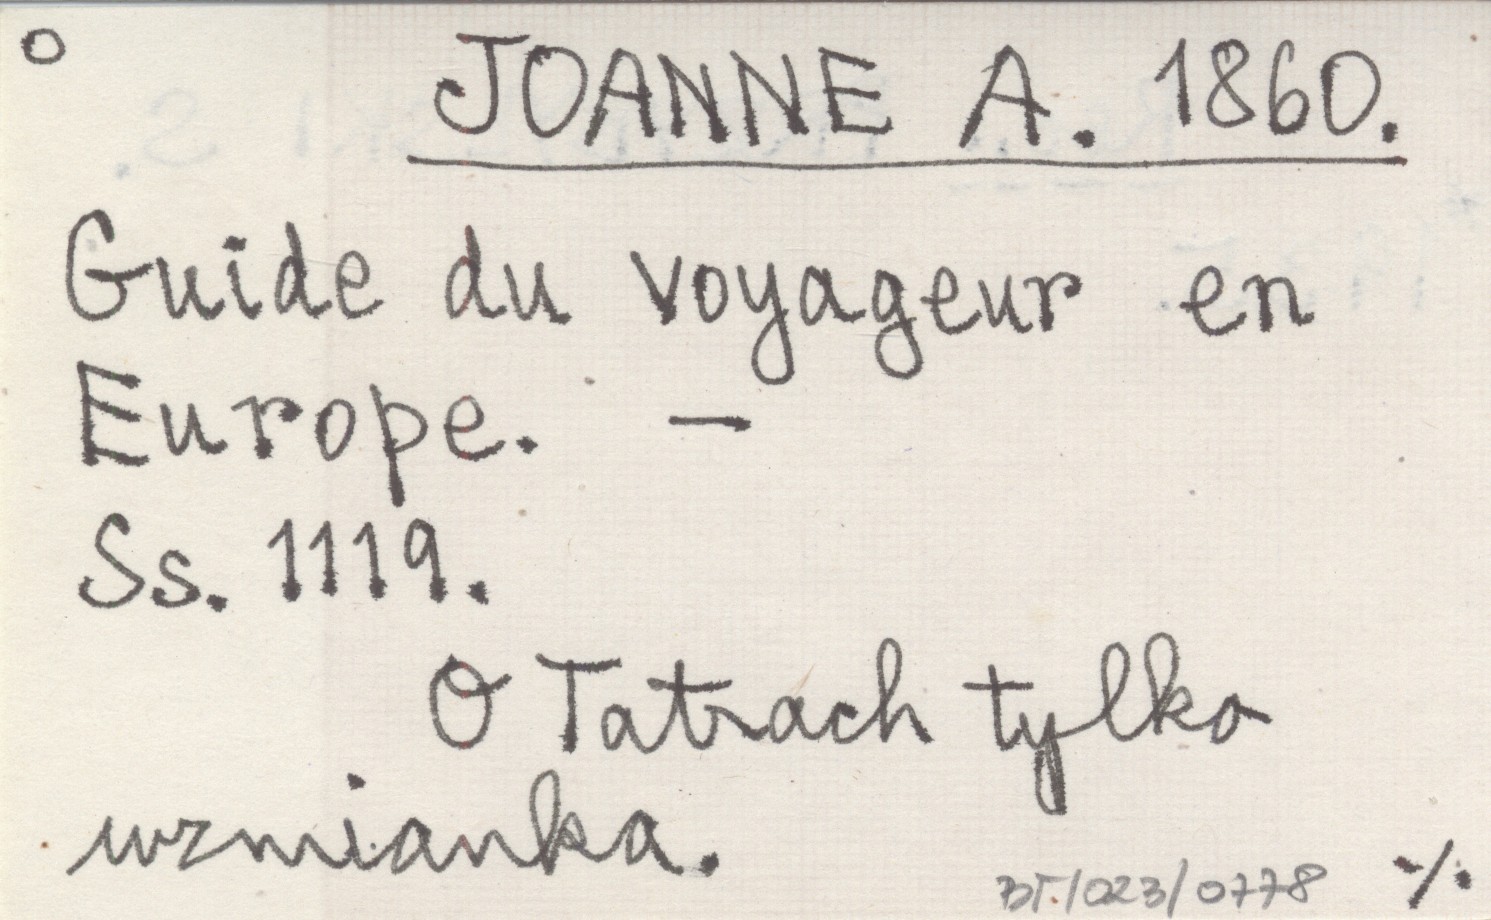 o JOANNE A. 1860.
Guide du voyageur en
Europe. —
Ss. 1119.
O Tatrach tylko
wzmianka.
BT/023/0778 ./.